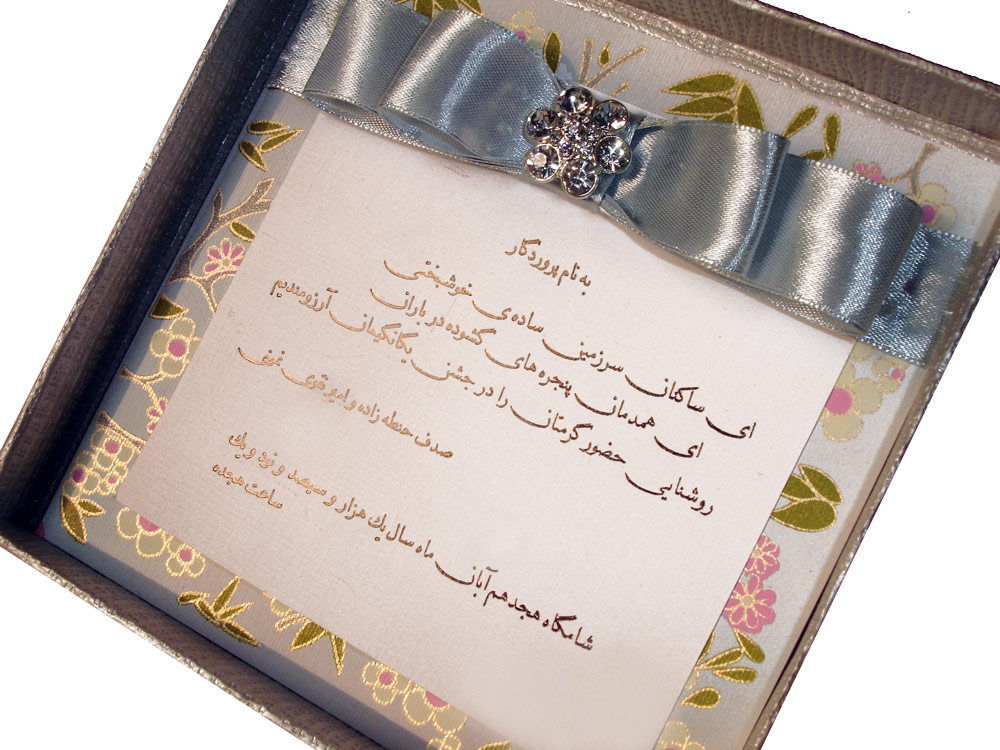 به نام پروردگار
ای ساکنان سرزمین ساده ی خوشبختی
ای همدمان پنجره های گشوده در باران
روشنایی حضور گرمتان را در جشن یگانگیمان آرزومندیم
صدف حنطه زاده و امیر قوی
شامگاه هجدهم آبان ماه سال یک هزار و سیصد و نود و یک
ساعت هجده